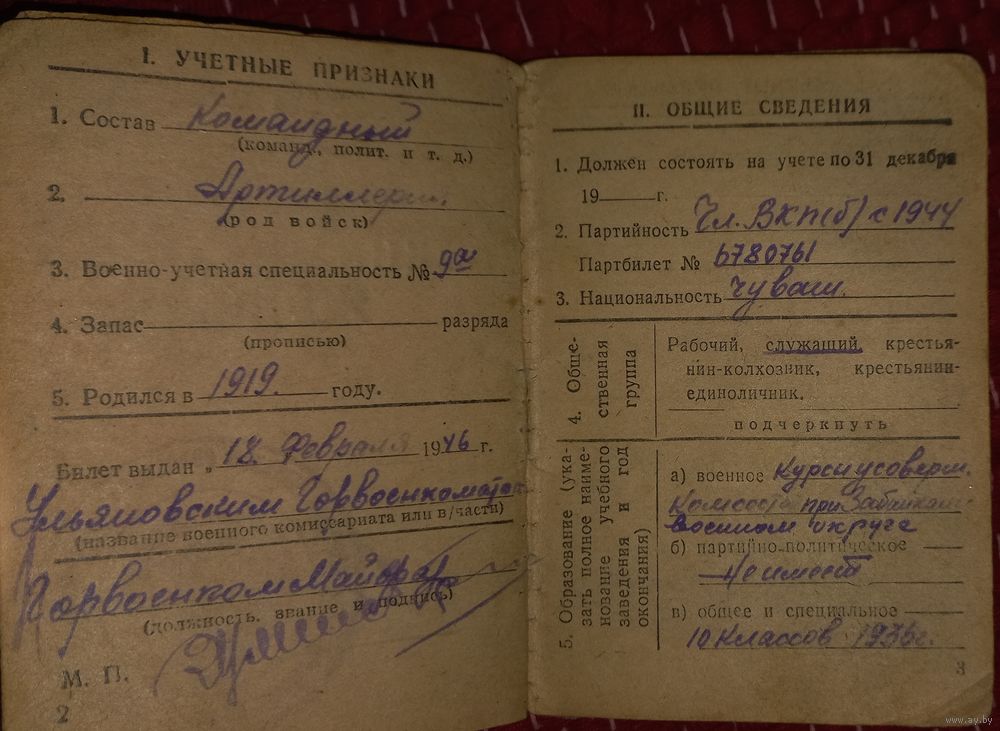 I. УЧЕТНЫЕ ПРИЗНАКИ
1. Состав Командный
(команд., полит. и т. д.)
2. Артиллерия
(род войск)
3. Военно-учетная специальность №
4. Запас разряда
(прописью)
5. Родился в 1919. году.
Билет выдан „ 18. Февраля 1946 г.
Ульяновским Горвоенкоматом
(название военного комиссариата или в/части)
Горвоенком Майор
(должность, звание и подпись)
М. П.
2
II. ОБЩИЕ СВЕДЕНИЯ
1. Должен состоять на учете по 31 декабря
19 г.
2. Партийность Чл. ВКП(б) с 1944
Партбилет № 6780761
3. Национальность Чуваш.
4. Обще-
ственная
группа
Рабочий, служащий, крестья-
нин-колхозник, крестьянин-
единоличник.
подчеркнуть
5. Образование (ука-
зать полное наиме-
нование учебного
заведения и год
окончания)
а) военное Курсы усоверш.
Комсостава при Забайкал.
военном округе
б) партийно-политическое
Не имеет
в) общее и специальное
10 классов 1936г.
3
www.ay.by